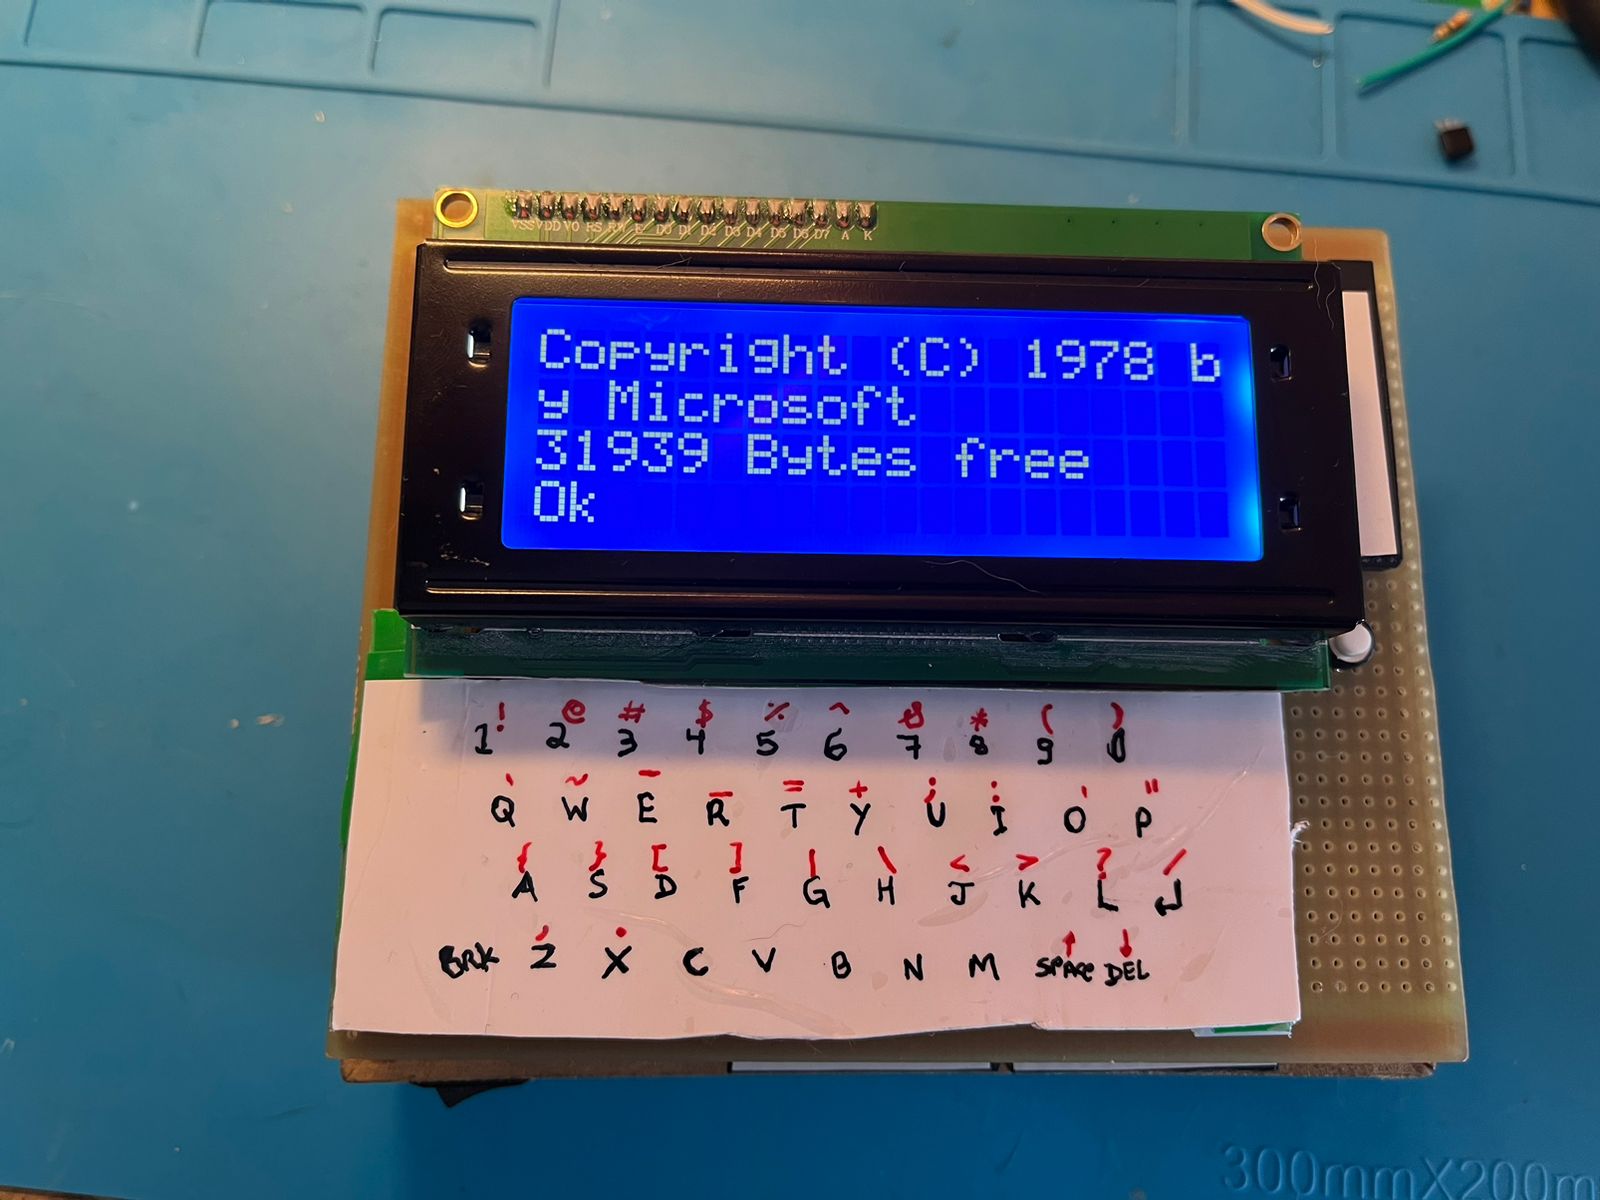 VSS VDD VO RS RW E D0 D1 D2 D3 D4 D5 D6 D7 A K
Copyright (C) 1978 b
y Microsoft
31939 Bytes free
Ok
! @ # $ % ^ & * ( )
1 2 3 4 5 6 7 8 9 0
` ~ - _ = + ; : ' "
Q W E R T Y U I O P
{ } [ ] | \ < > ? /
A S D F G H J K L ↲
, . ↑ ↓
BRK Z X C V B N M SPACE DEL
300mmX200m